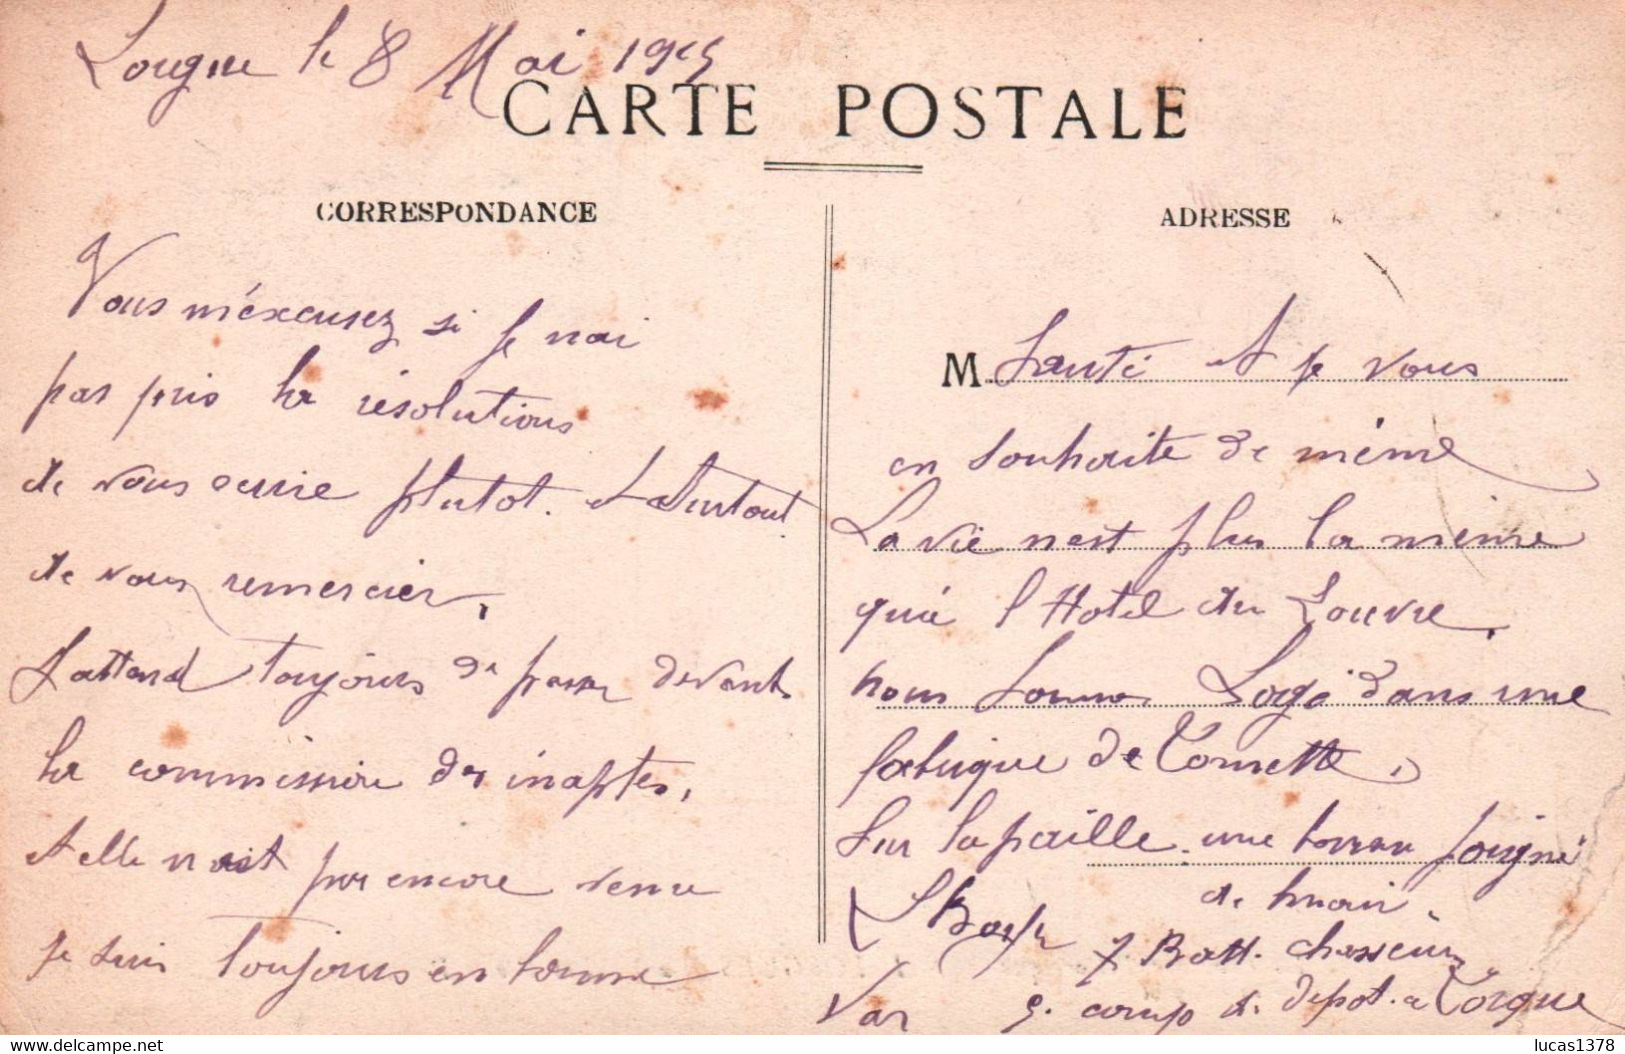 Lorgue le 8 Mai 1915
CARTE POSTALE
CORRESPONDANCE
Vous m'éxcusez si je nai
pas pris la résolutions
de vous ecrire plutot. et surtout
de vous remercier,
J'attend toujours de passer devant
la commission des inaptes,
et elle n'est pas encore venu
je suis toujours en bonne
ADRESSE
M Santé et je vous
en souhaite de même
La vie n'est plus la même
qu'à l'Hotel du Louvre.
nous sommes Logé dans une
fabrique de Tomette,
sur la paille. une bonne poigné
de main,
7 Batt. chasseurs
Var 9. comp de depot. a Lorgue
delcampe.net
lucas1378